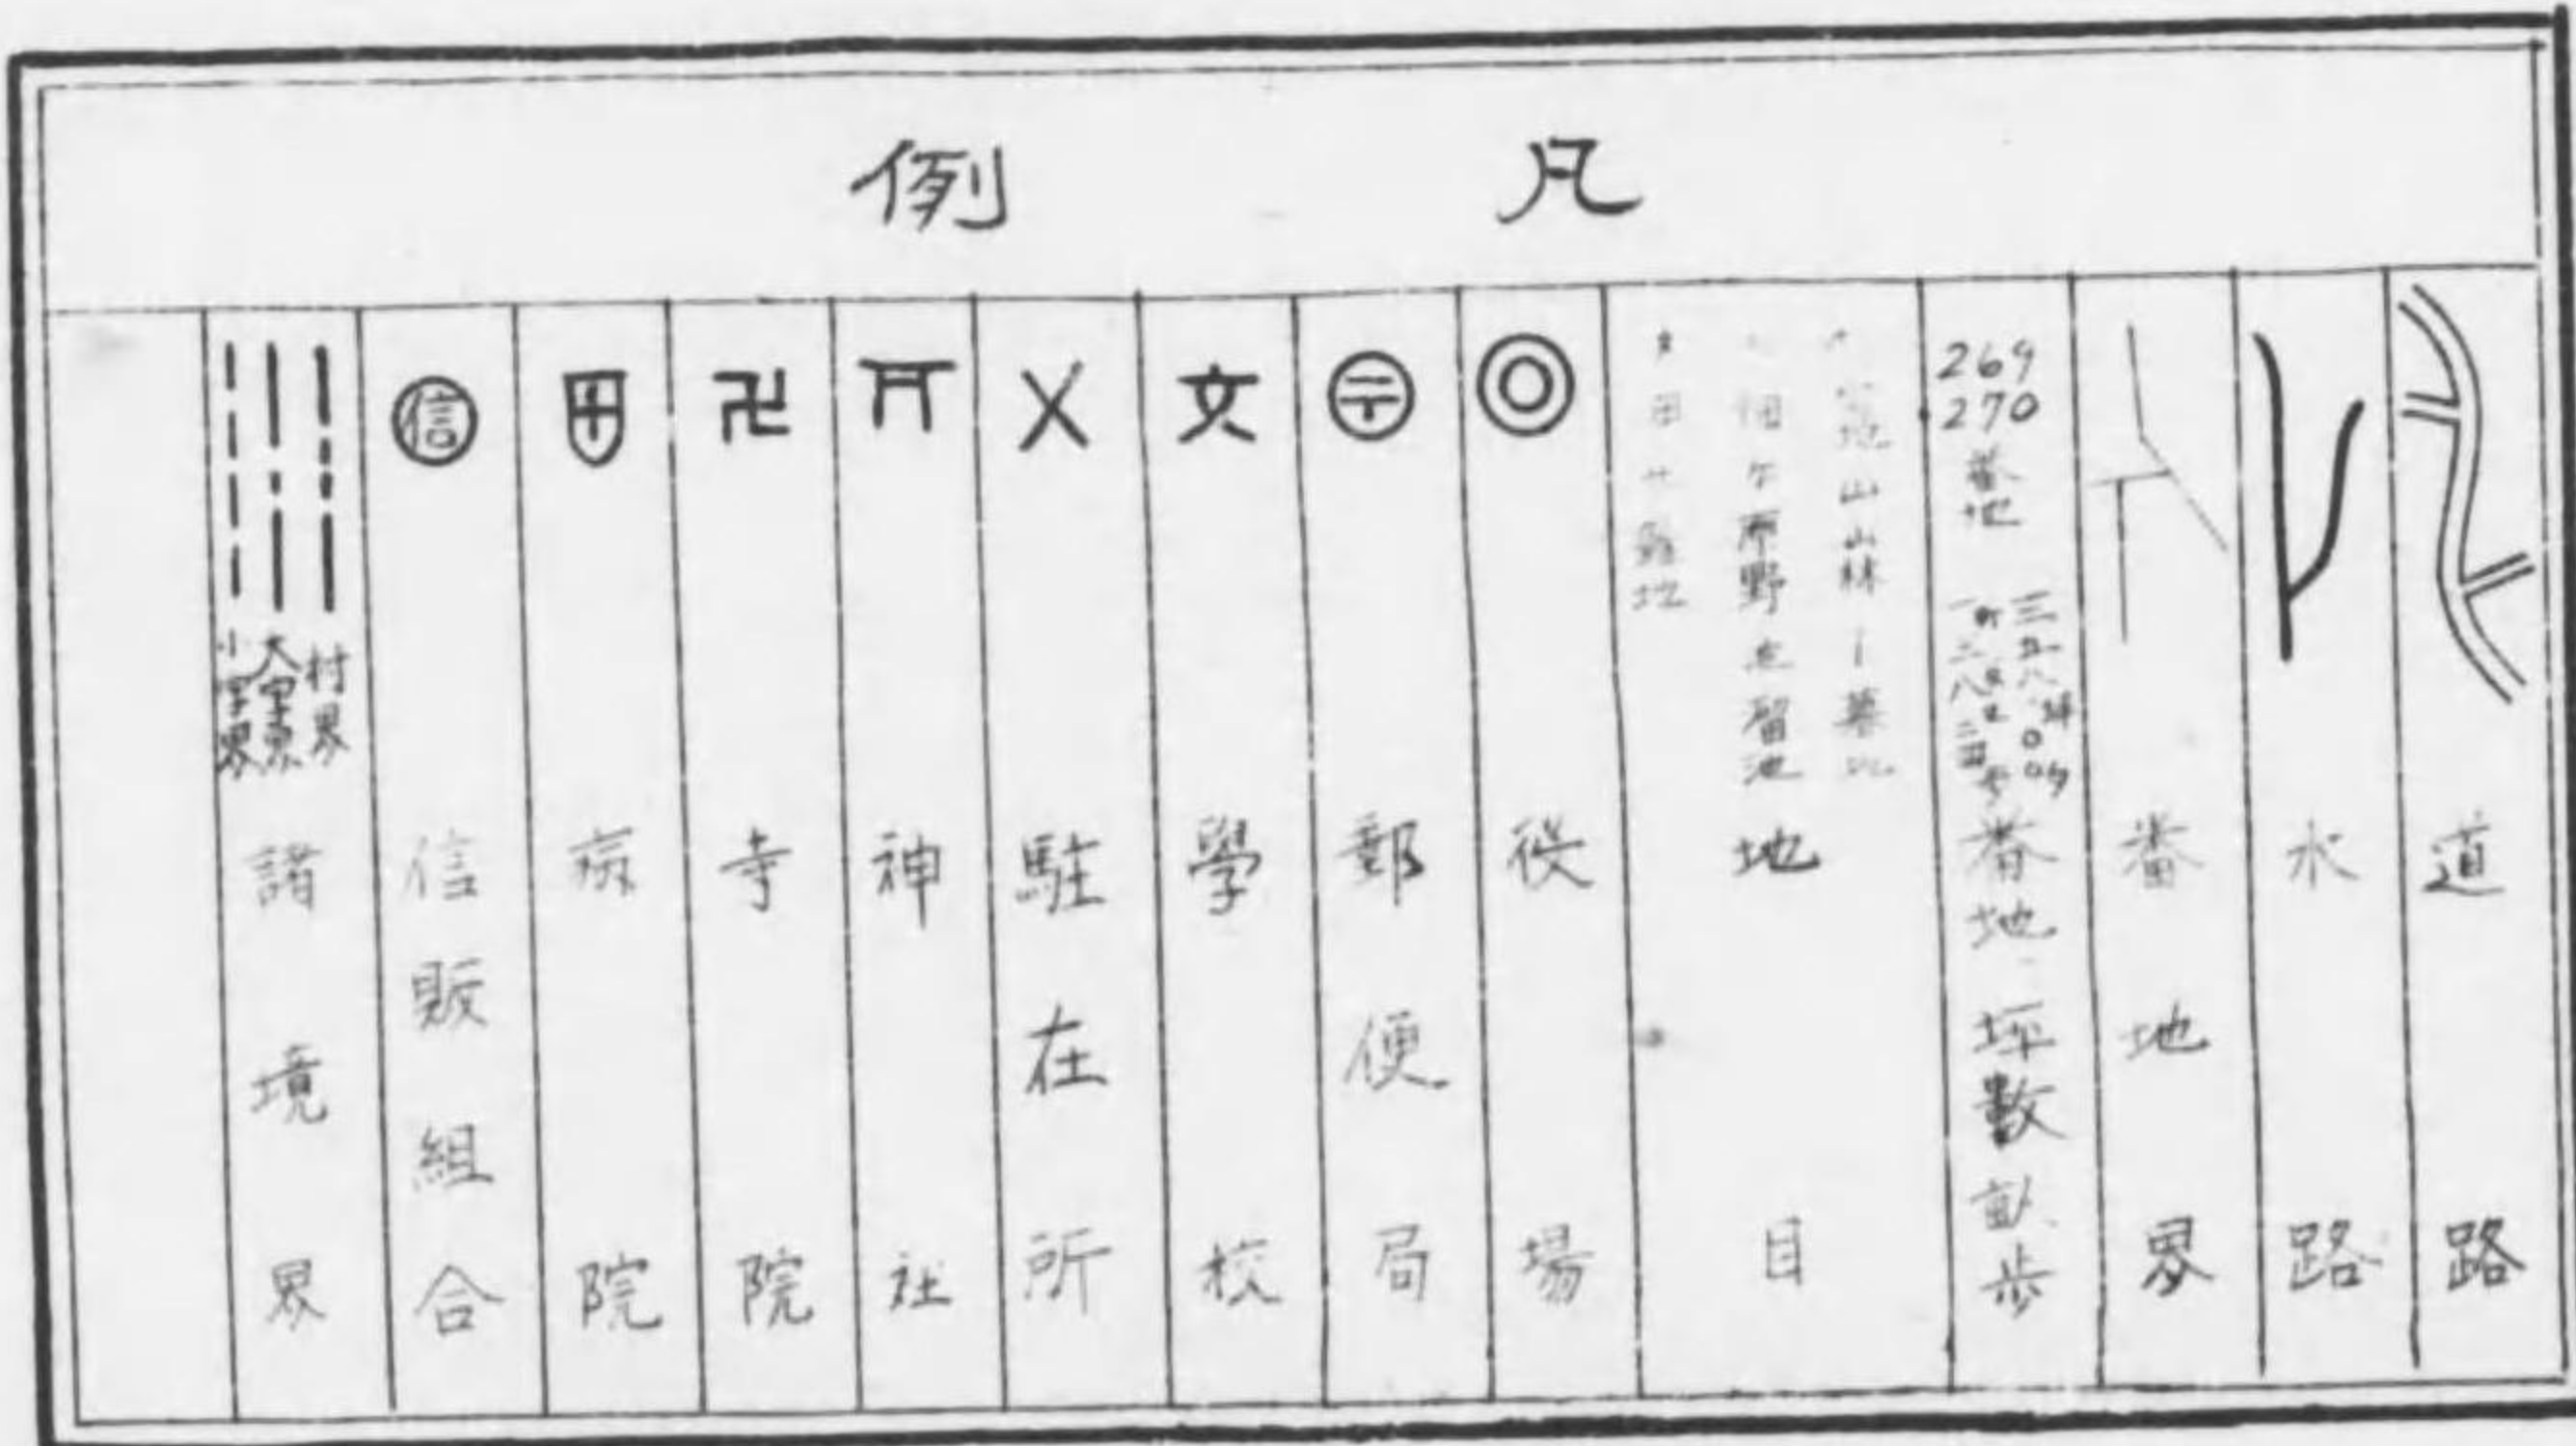 凡例
道路
水路
番地界
269
270
番地
番地 坪數 畝歩
山山林
原野 溜池
田
雜地
地目
役場
郵便局
文
學校
駐在所
神社
卍
寺院
病院
信
信販組合
村界
大字界
小字界
諸境界